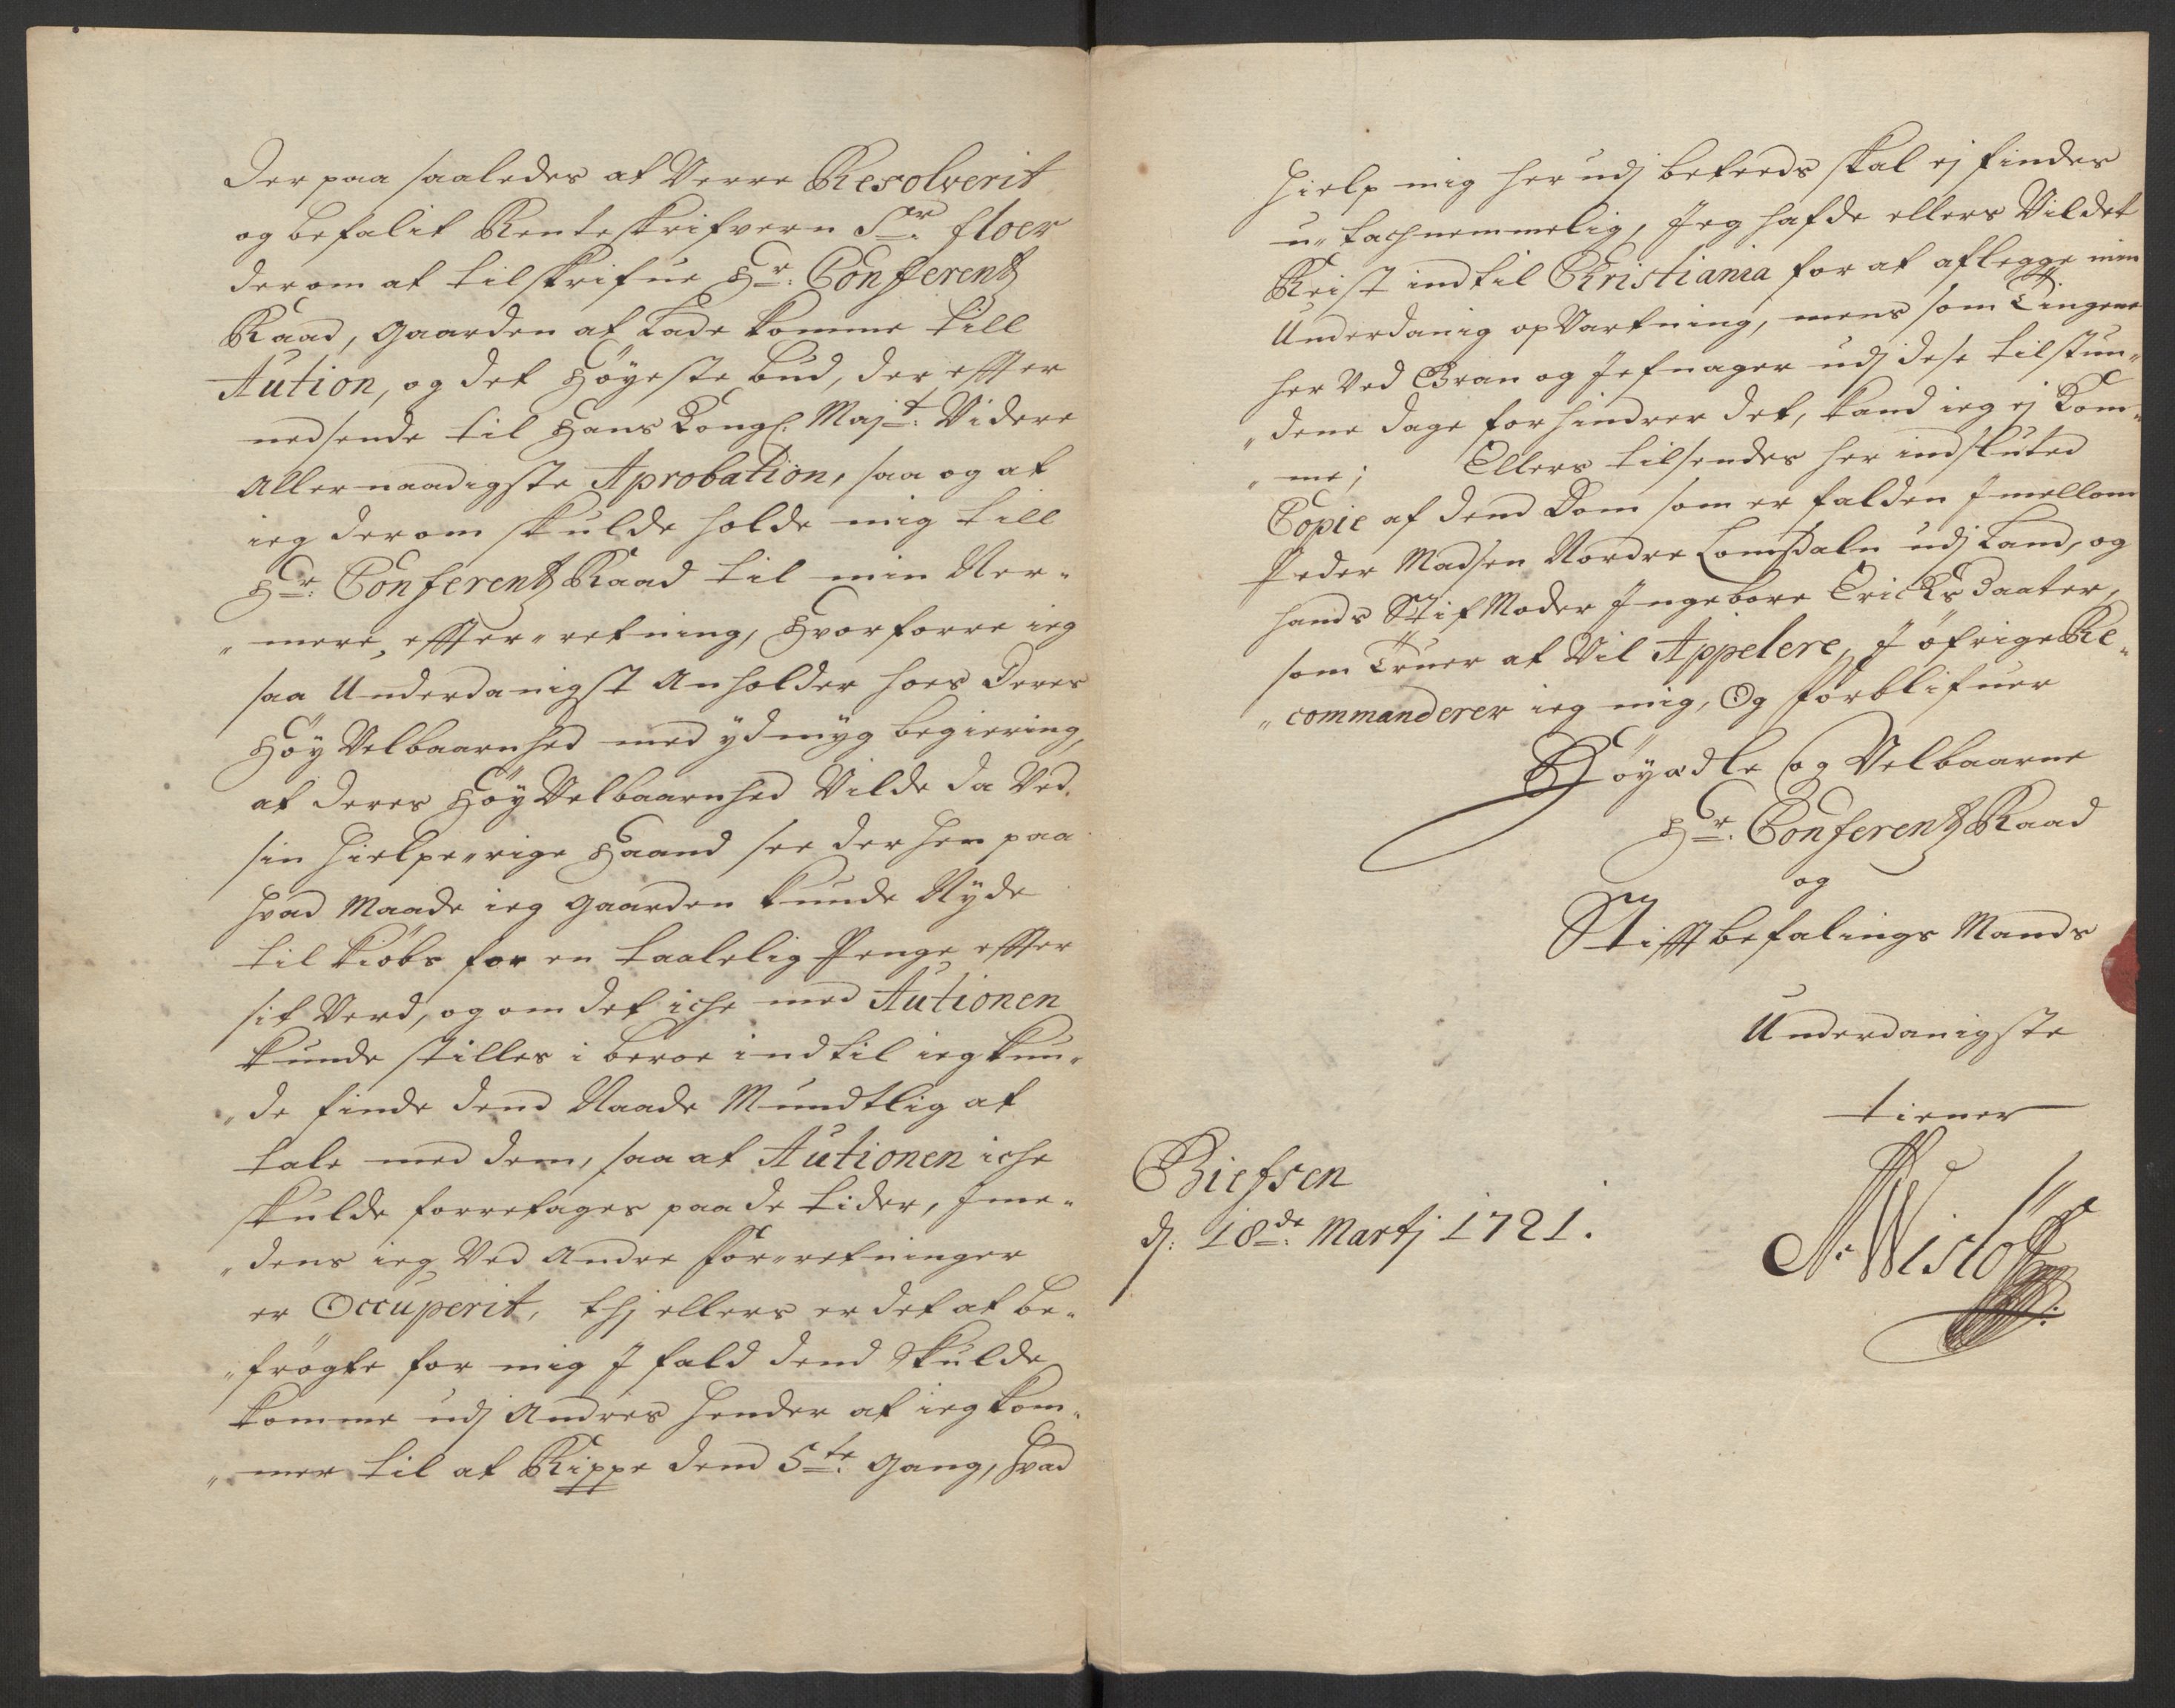 Der paa saaledes at Verre Resolverit
og befalit Renteskrifvern Sr. floer
derom at tilskrifue Hr: Conferentz
Raad, gaarden at Lade komme till
Aution, og det Höyeste bud, der effter
nedsende til Hans Kongl: Majt: Videre
allernaadigste Aprobation, saa og at
ieg derom skulde holde mig till
Hr: Conferentz Raad til min Ner-
„mere, effter„retning, Hvorforre ieg
saa Underdanigst anholder hoes Deres
Höy Velbaarnhed med ydmyg begiering,
at deres Höy Velbaarnhed Vilde da Ved
sin Hielpe„rige Haand see der hen paa
hvad Maade ieg gaarden kunde Nyde
til kiöbs for en taalelig Penge effter
sit Verd, og om det iche med Autionen
kunde stilles i beroe ind til ieg kun„
„de finde dend Naade Mundtlig at
tale med dem, saa at Autionen iche
skulde forretages paa de tider, Ime„
„dens ieg Ved andre for„retninger
er Occuperit, thj ellers er det at be„
„frögte for mig I fald dend skulde
komme udj andres hender at ieg kom„
„mer til at Kippe dend 5te: gang, hvad
Hielp mig her udj beteeds skal ej findes
u„tachnemmelig, Jeg hafde ellers Vildet
Reist ind til Christiania for at aflegge min
Underdanig opVartning, mens som Tingene
her Ved Gran og Jefnager udj dese tilstun„
„dene dage forhindrer det, kand ieg ej Kom„
„me; Ellers tilsendes her indsluted
Copie af dend Dom som er falden Imellom
Peder Madsen Nordre Lomsdaln udj Land, og
hands StifModer Ingebore Ericksdaater,
som Truer at Vil Appelere, I öfrige Re„
„commanderer ieg mig, Og forblifuer
Höyædle og Velbaarne
Hr: Conferentz Raad
og
Stifftbefalings Mands
Underdanigste
tiener
N: Wislöff
Grefsen
d: 18de: Martj 1721.